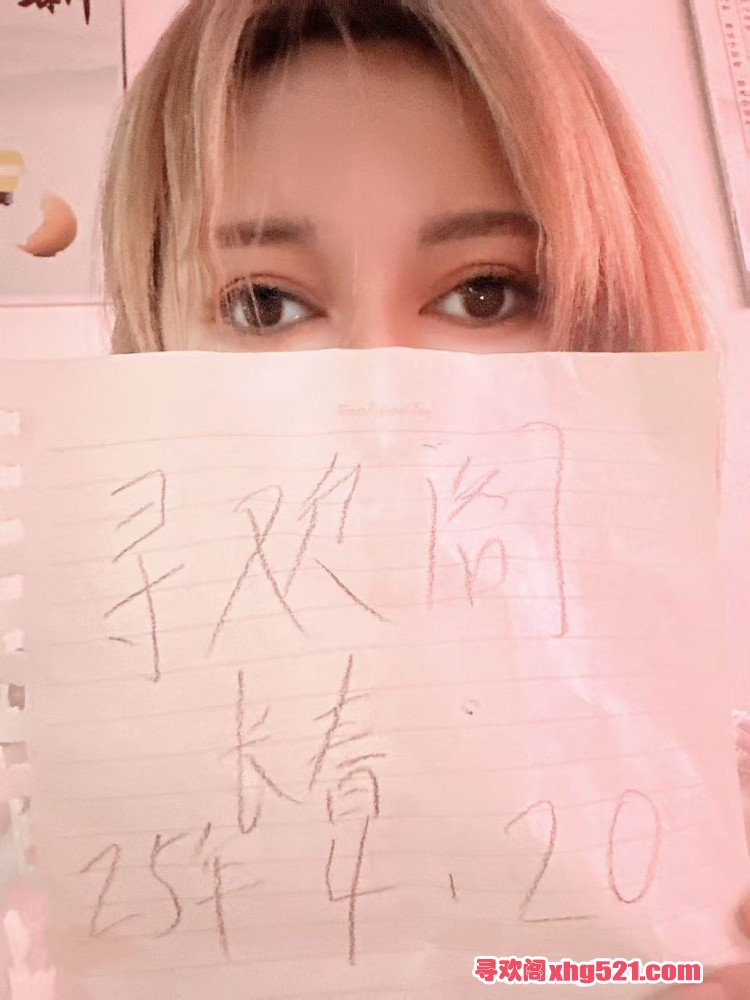 寻欢阁
长春
25年4.20
寻欢阁xhg521.com